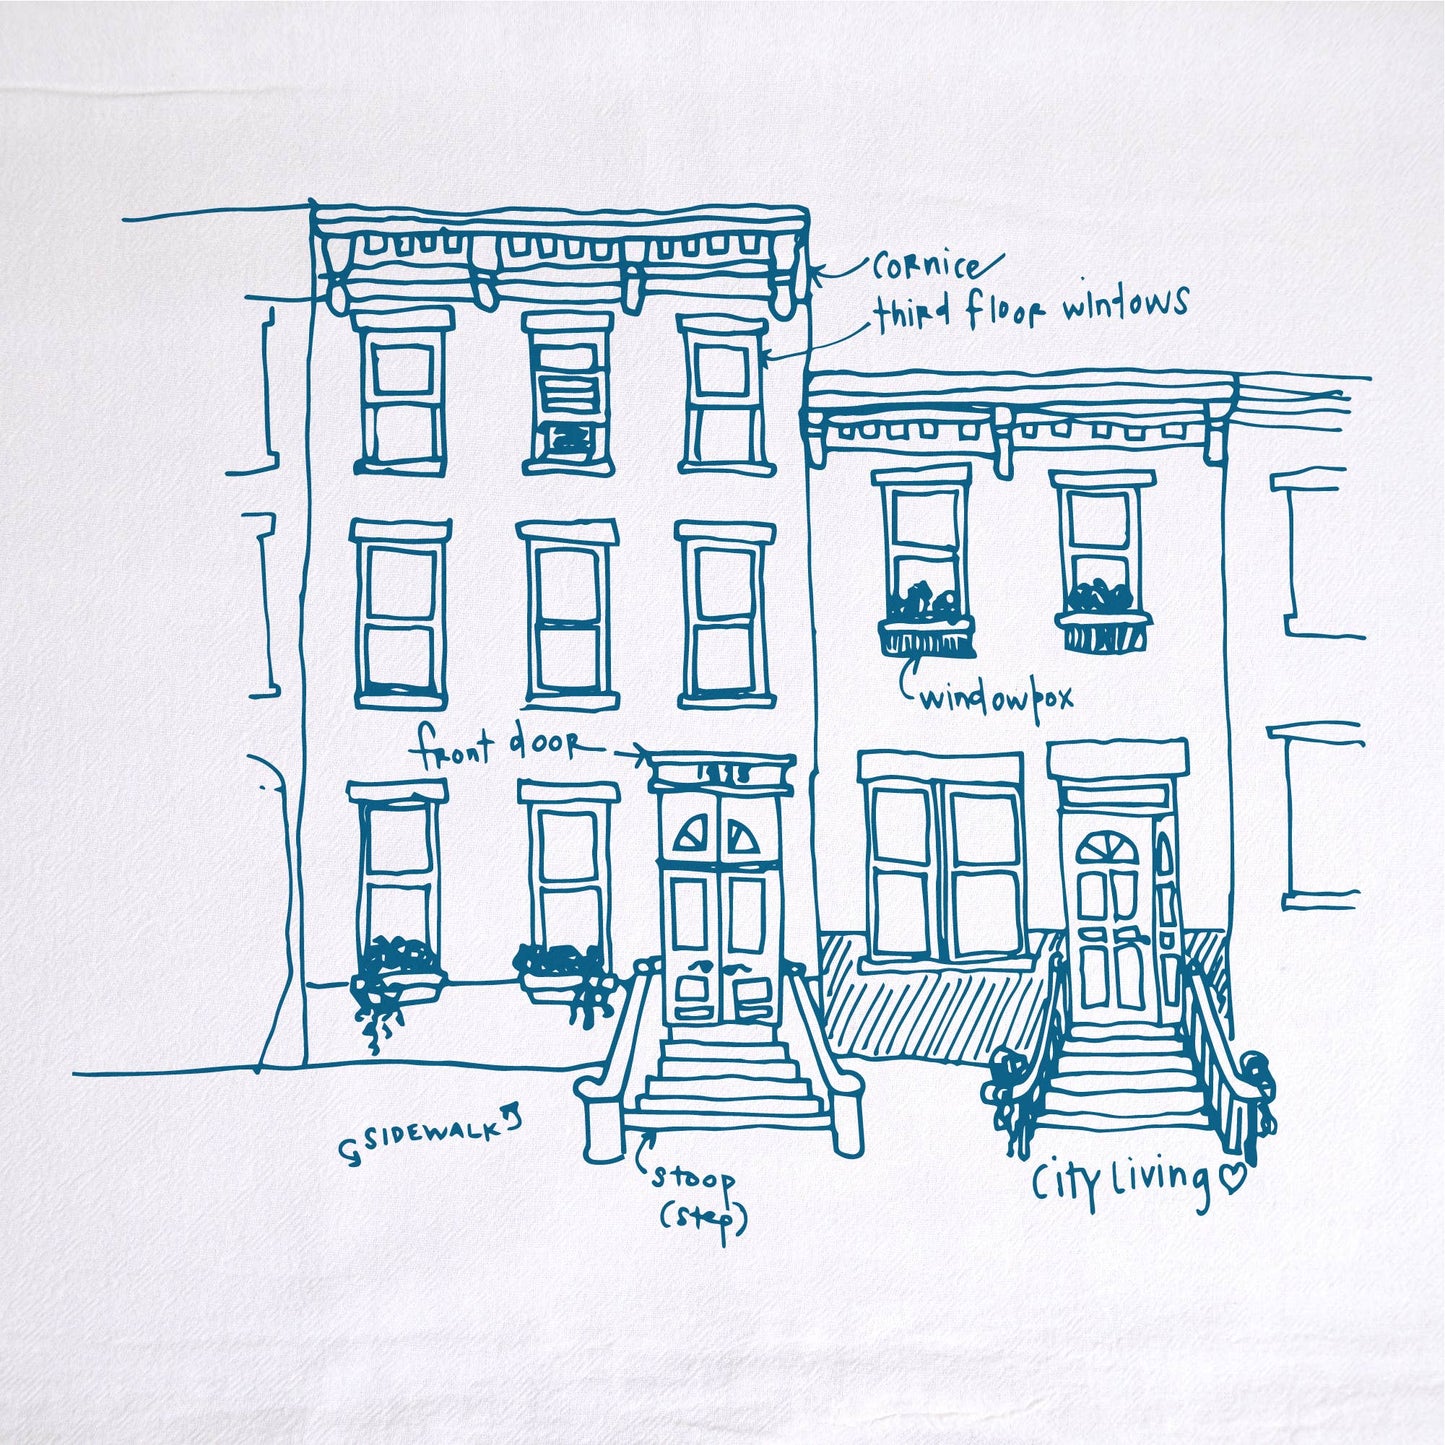 cornice
third floor windows
windowbox
front door
SIDEWALK
stoop
(step)
City Living♡